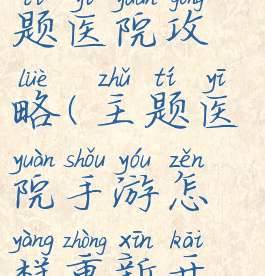 tí yī yuàn gōng
题医院攻
lüè zhǔ tí yī
略(主题医
yuàn shǒu yóu zěn
院手游怎
yàng zhòng xīn kāi
样重新开